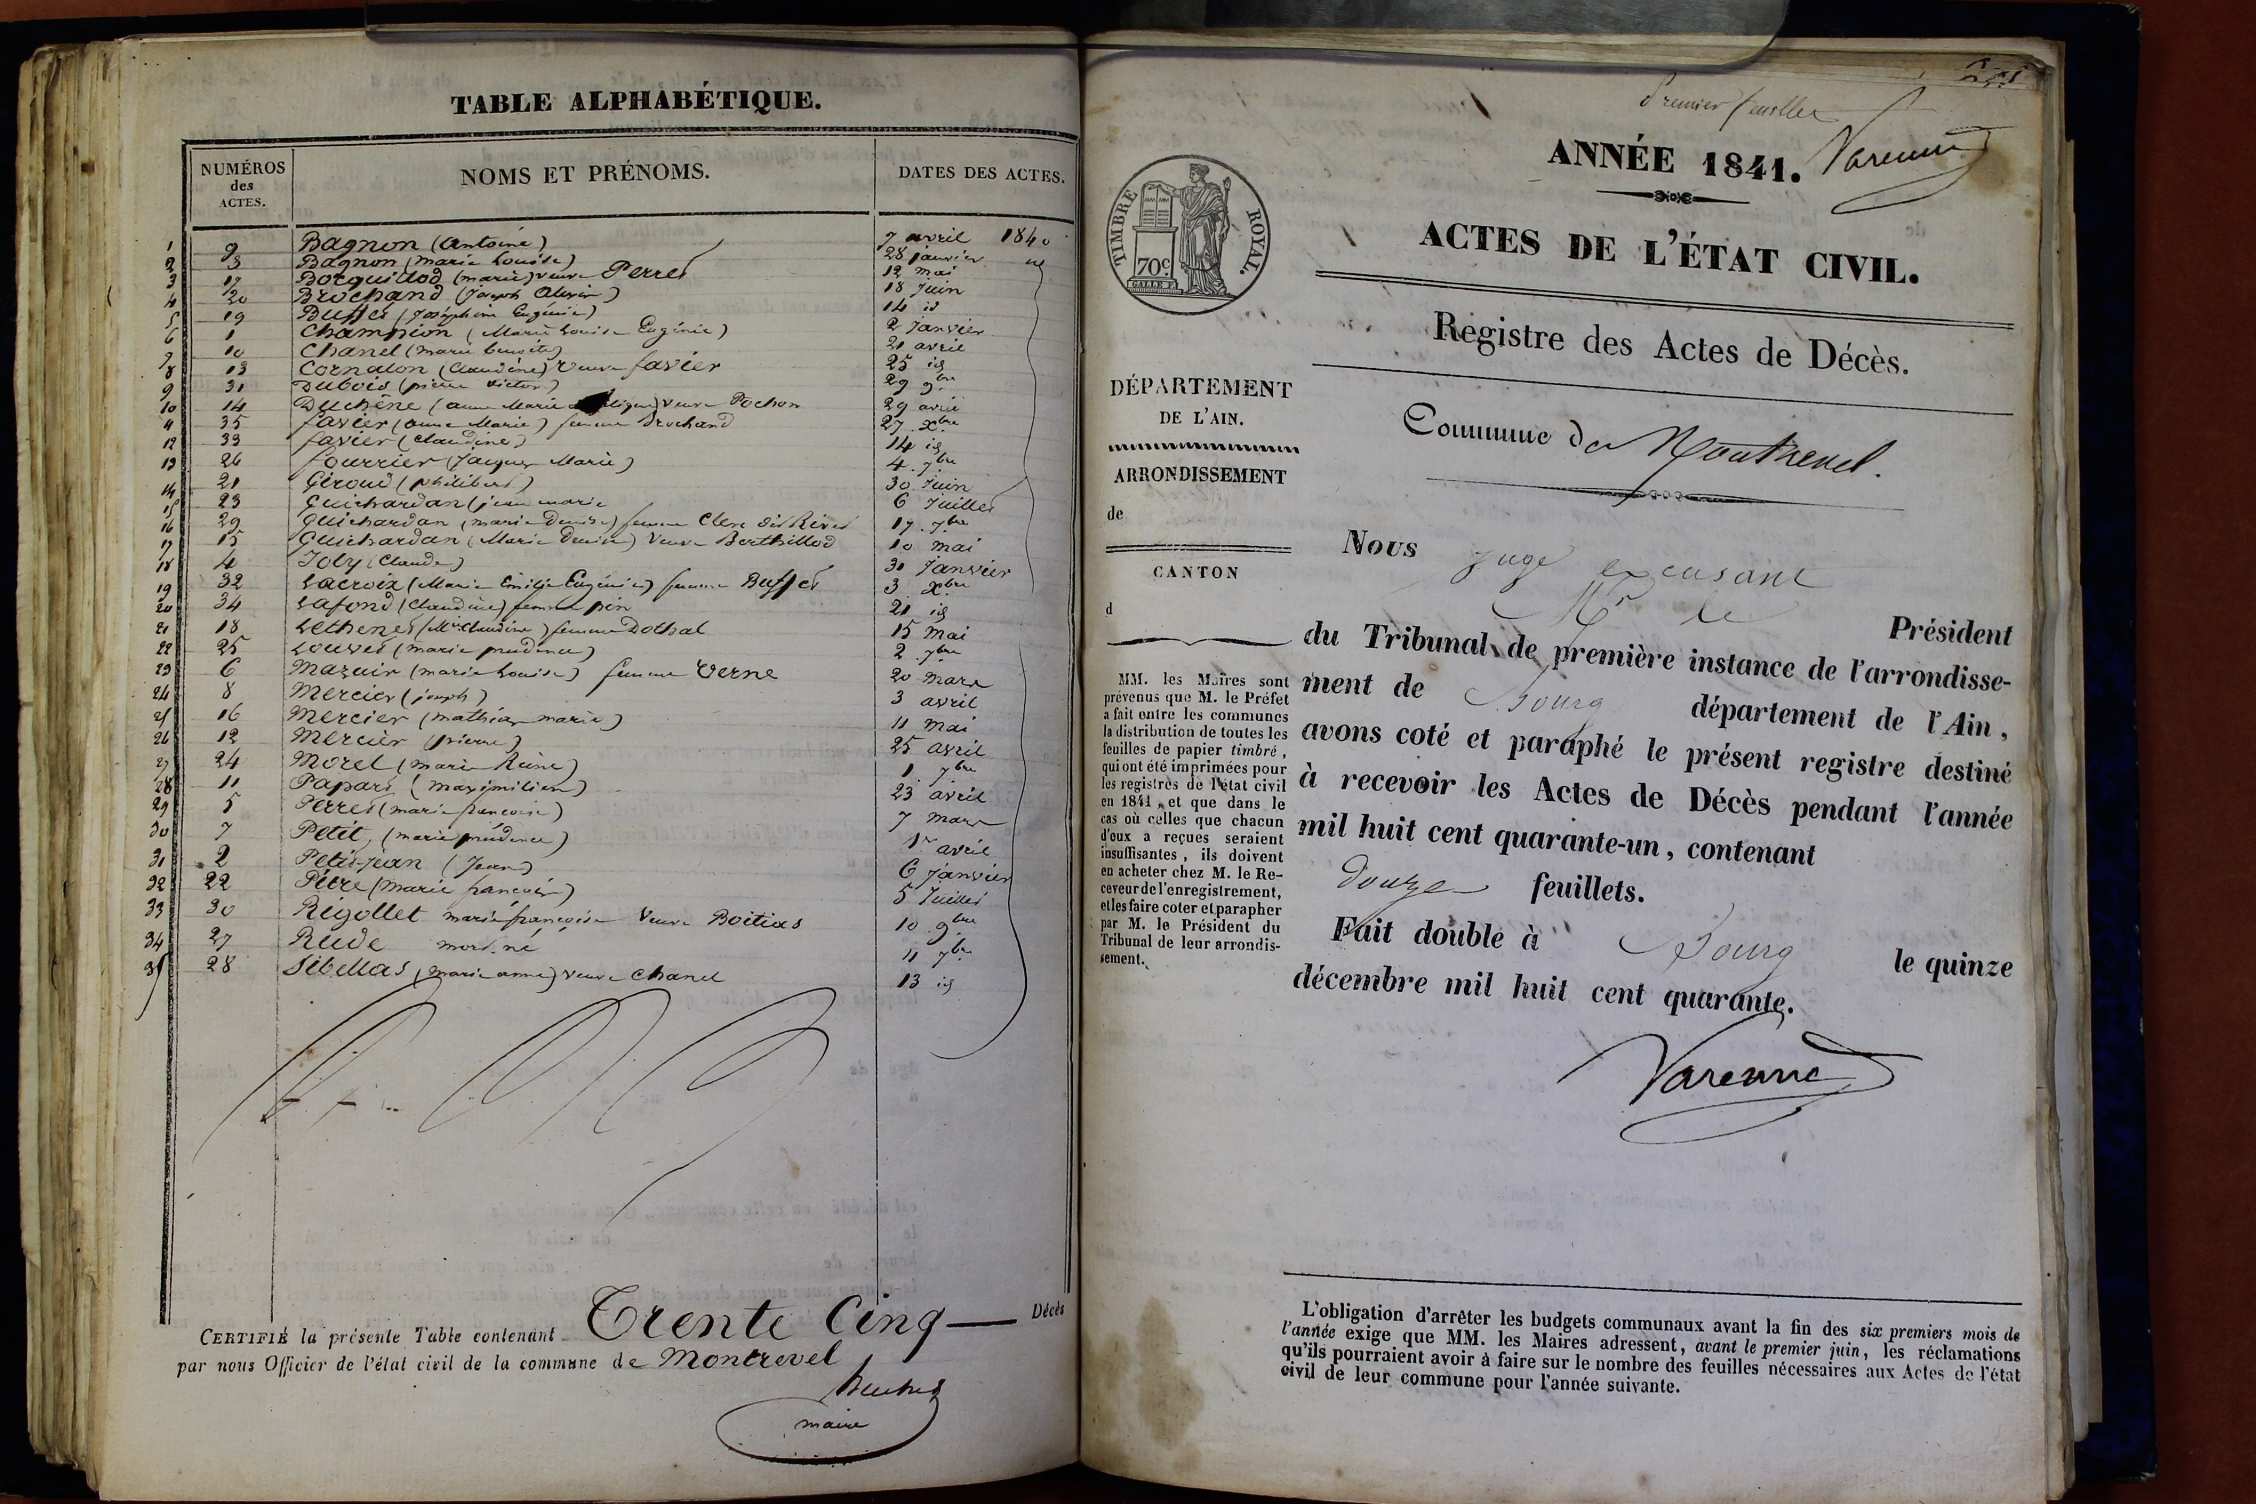 TABLE ALPHABÉTIQUE.
NUMÉROS des ACTES. NOMS ET PRÉNOMS. DATES DES ACTES.
1 9 Bagnon (antoine) 7 avril 1840
2 3 Bagnon (marie Louise) 28 janvier
3 17 Borguillod (marie) veuve Perret 12 mai
4 20 Brochand (joseph Alexis) 18 Juin
5 19 Buffet (Joséphine Eugénie) 14 id
6 1 Champion (Marie Louise Eugénie) 2 Janvier
7 10 Chanel (marie benoite) 21 avril
8 13 Cornaton (Claudine) veuve favier 25 id
9 31 Dubois (pierre victor) 29 9bre
10 14 Duchêne (anne Marie) veuve Pochon 29 avril
11 35 favier (anne Marie) femme brochand 27 Xbre
12 33 favier (Claudine) 14 id
13 26 fourrier (Jacques Marie) 4 7bre
14 21 Géroud (philibert) 30 Juin
15 23 Guichardan (jean marie 6 Juillet
16 29 Guichardan (marie Denise) femme Clerc dit Rivet 17 7bre
17 15 Guichardan (Marie Denise) Veuve Berthillod 10 mai
18 4 Joly (Claude) 31 Janvier
19 32 Lacroix (Marie Emilie Eugénie) femme Buffet 3 Xbre
20 34 Lafond (Claudine) femme pin 21 id
21 18 Lethenet (Mie Claudine) femme Dothal 15 Mai
22 25 Louvet (marie prudence) 2 7bre
23 6 Mazuir (marie Louise) femme Verne 20 mars
24 8 Mercier (joseph) 3 avril
25 16 Mercier (mathias marie) 11 mai
26 12 Mercier (pierre) 25 avril
27 24 Morel (marie Reine) 1 7bre
28 11 Papard (maximilien) 23 avril
29 5 Perret (marie françoise) 7 mars
30 7 Petit, (marie prudence) 1er avril
31 2 Petit-jean (Jean) 6 Janvier
32 22 Pitre (marie françoise) 5 Juillet
33 30 Rigollet marie françoise Veuve Boitias 10 9bre
34 27 Rude mort né 11 7bre
35 28 Sibellas (marie anne) veuve Chanel 13 id
CERTIFIÉ la présente Table contenant Trente Cinq — Décès
par nous Officier de l'état civil de la commune de Montrevel
maire
Premier feuillet
ANNÉE 1841. Varenne
ACTES DE L'ÉTAT CIVIL.
TIMBRE ROYAL.
70c
Registre des Actes de Décès.
DÉPARTEMENT
DE L'AIN.
ARRONDISSEMENT
de
CANTON
d
MM. les Maires sont
prévenus que M. le Préfet
a fait entre les communes
la distribution de toutes les
feuilles de papier timbré,
qui ont été imprimées pour
les registres de l'état civil
en 1841, et que dans le
cas où celles que chacun
d'eux a reçues seraient
insuffisantes, ils doivent
en acheter chez M. le Re-
ceveur de l'enregistrement,
et les faire coter et parapher
par M. le Président du
Tribunal de leur arrondis-
sement.
Commune de Montrevel.
Nous juge
Mr le Président
du Tribunal de première instance de l'arrondisse-
ment de Bourg département de l'Ain,
avons coté et paraphé le présent registre destiné
à recevoir les Actes de Décès pendant l'année
mil huit cent quarante-un, contenant
douze feuillets.
Fait double à Bourg le quinze
décembre mil huit cent quarante.
Varenne
L'obligation d'arrêter les budgets communaux avant la fin des six premiers mois de
l'année exige que MM. les Maires adressent, avant le premier juin, les réclamations
qu'ils pourraient avoir à faire sur le nombre des feuilles nécessaires aux Actes de l'état
civil de leur commune pour l'année suivante.